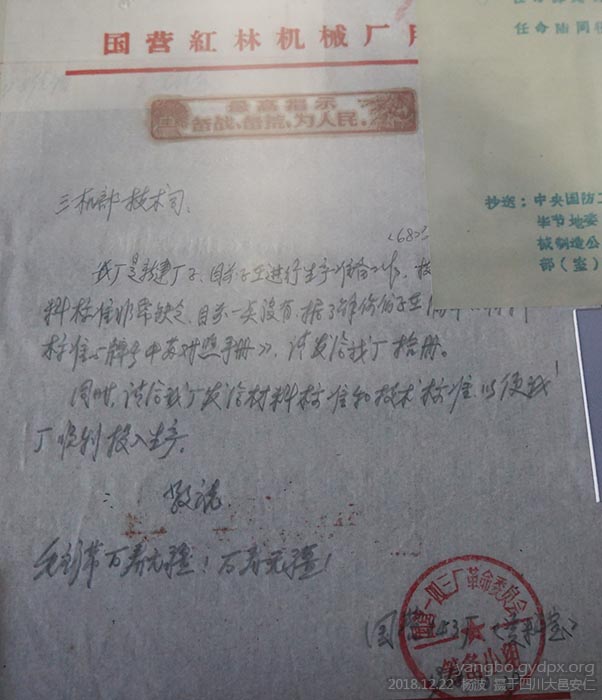 国营紅林机械厂
最高指示
备战、备荒、为人民。
任命陆同
抄送：中央国防工
毕节地委
械制造公
部（壹）
三机部技术司：
(68)
我厂是新建厂子，目前正在进行生产准备工作，
料标准非常缺乏，目前一类没有，据了解你们正在
标准与牌号中苏对照手册》，请发给我厂拾册。
同时，请给我厂发给材料标准和技术标准，以便我
厂顺利投入生产。
敬祝
毛主席万寿无疆！万寿无疆！
国营一四三厂革命委员会
生产小组
国营143厂
2018.12.22 杨波 摄于四川大邑安仁
yangbo.gydpx.org